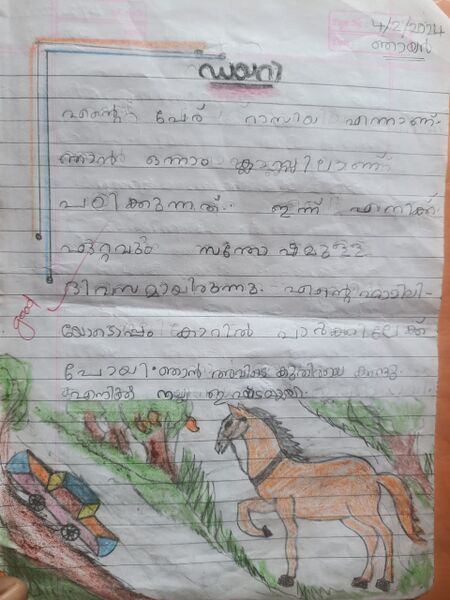 4/2/2024
ഞായർ
ഡയറി
എന്റെ പേര് റാസിയ എന്നാണ്.
ഞാൻ ഒന്നാം ക്ലാസ്സിലാണ്
പഠിക്കുന്നത്. ഇന്ന് എനിക്ക്
ഏറ്റവും സന്തോഷമുള്ള
ദിവസമായിരുന്നു. എന്റെ ഫാമിലി-
യോടൊപ്പം കാറിൽ പാർക്കിലേക്ക്
പോയി. ഞാൻ അവിടെ കുതിരയെ കണ്ടു.
എനിക്ക് നല്ല ഇഷ്ടമായി.
good